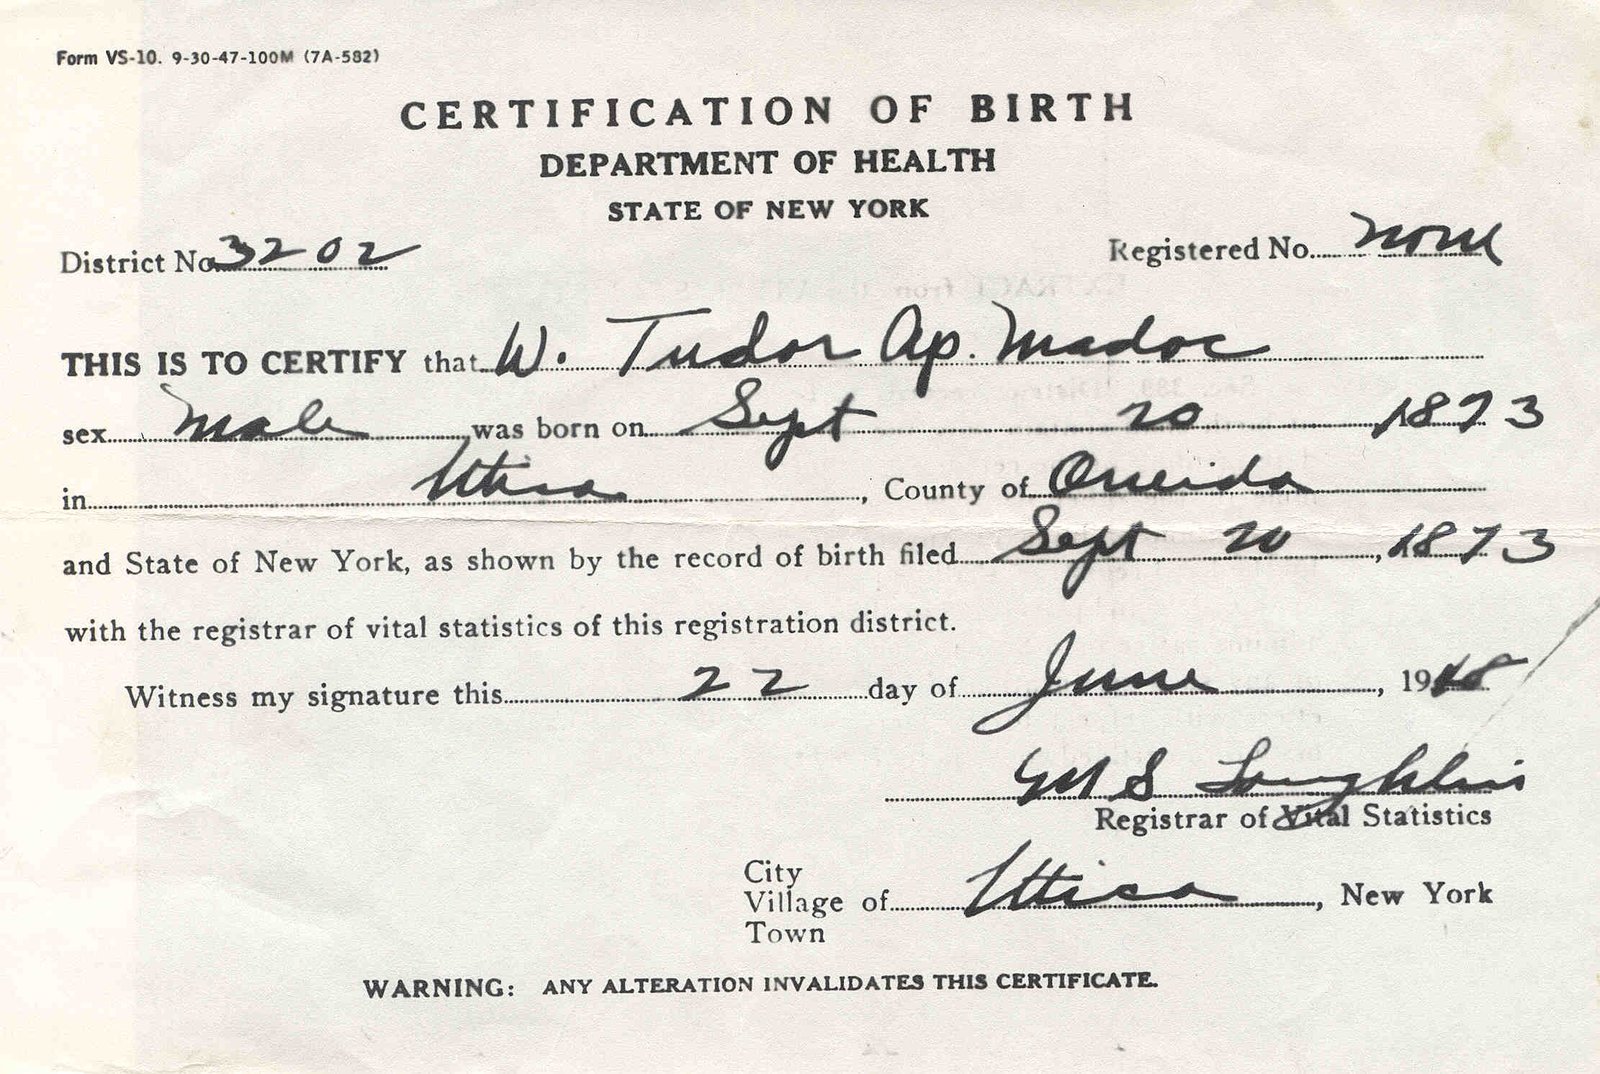 Form VS-10. 9-30-47-100M (7A-582)
CERTIFICATION OF BIRTH
DEPARTMENT OF HEALTH
STATE OF NEW YORK
District No. 3202 Registered No. none
THIS IS TO CERTIFY that W. Tudor Ap. Madoc
sex Male was born on Sept 20 1873
in Utica, County of Oneida
and State of New York, as shown by the record of birth filed Sept 20, 1873
with the registrar of vital statistics of this registration district.
Witness my signature this 22 day of June, 1948
M S Loughlin
Registrar of Vital Statistics
City
Village of Utica, New York
Town
WARNING: ANY ALTERATION INVALIDATES THIS CERTIFICATE.